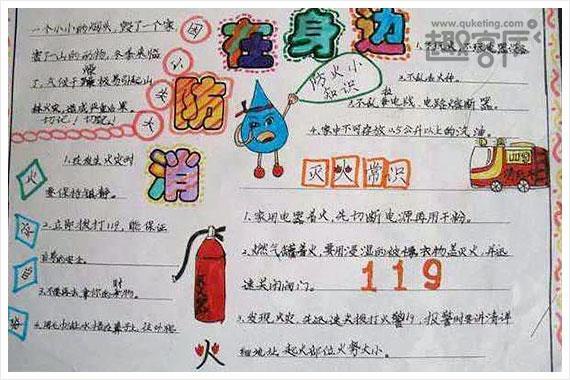 www.quketing.com
趣客厅
消防在身边
一个小小的烟头,毁了一个家
害了山的动物,冬季来临
了,气候干燥极易引起山
林火灾,造成严重后果。
切记!切记!
防火小
知识
1.不玩火,
2.不乱丢火种。
3.不乱拉电线,电路
4.家中不可存放0.5公升以上的汽油。
火
1.在发生火灾时
要保持镇静。
2.立即拨打119,能保证
自身的安全。
3.不要再去拿你的财物。
灭火常识
1.家用电器着火,先切断电源再用干粉。
2.燃气罐着火,要用浸湿的被褥、衣物盖灭火,并迅
速关闭阀门。
119
3.发现火灾,迅速拨打火警119,报警时要讲清详
细地址、起火部位火势大小。
火